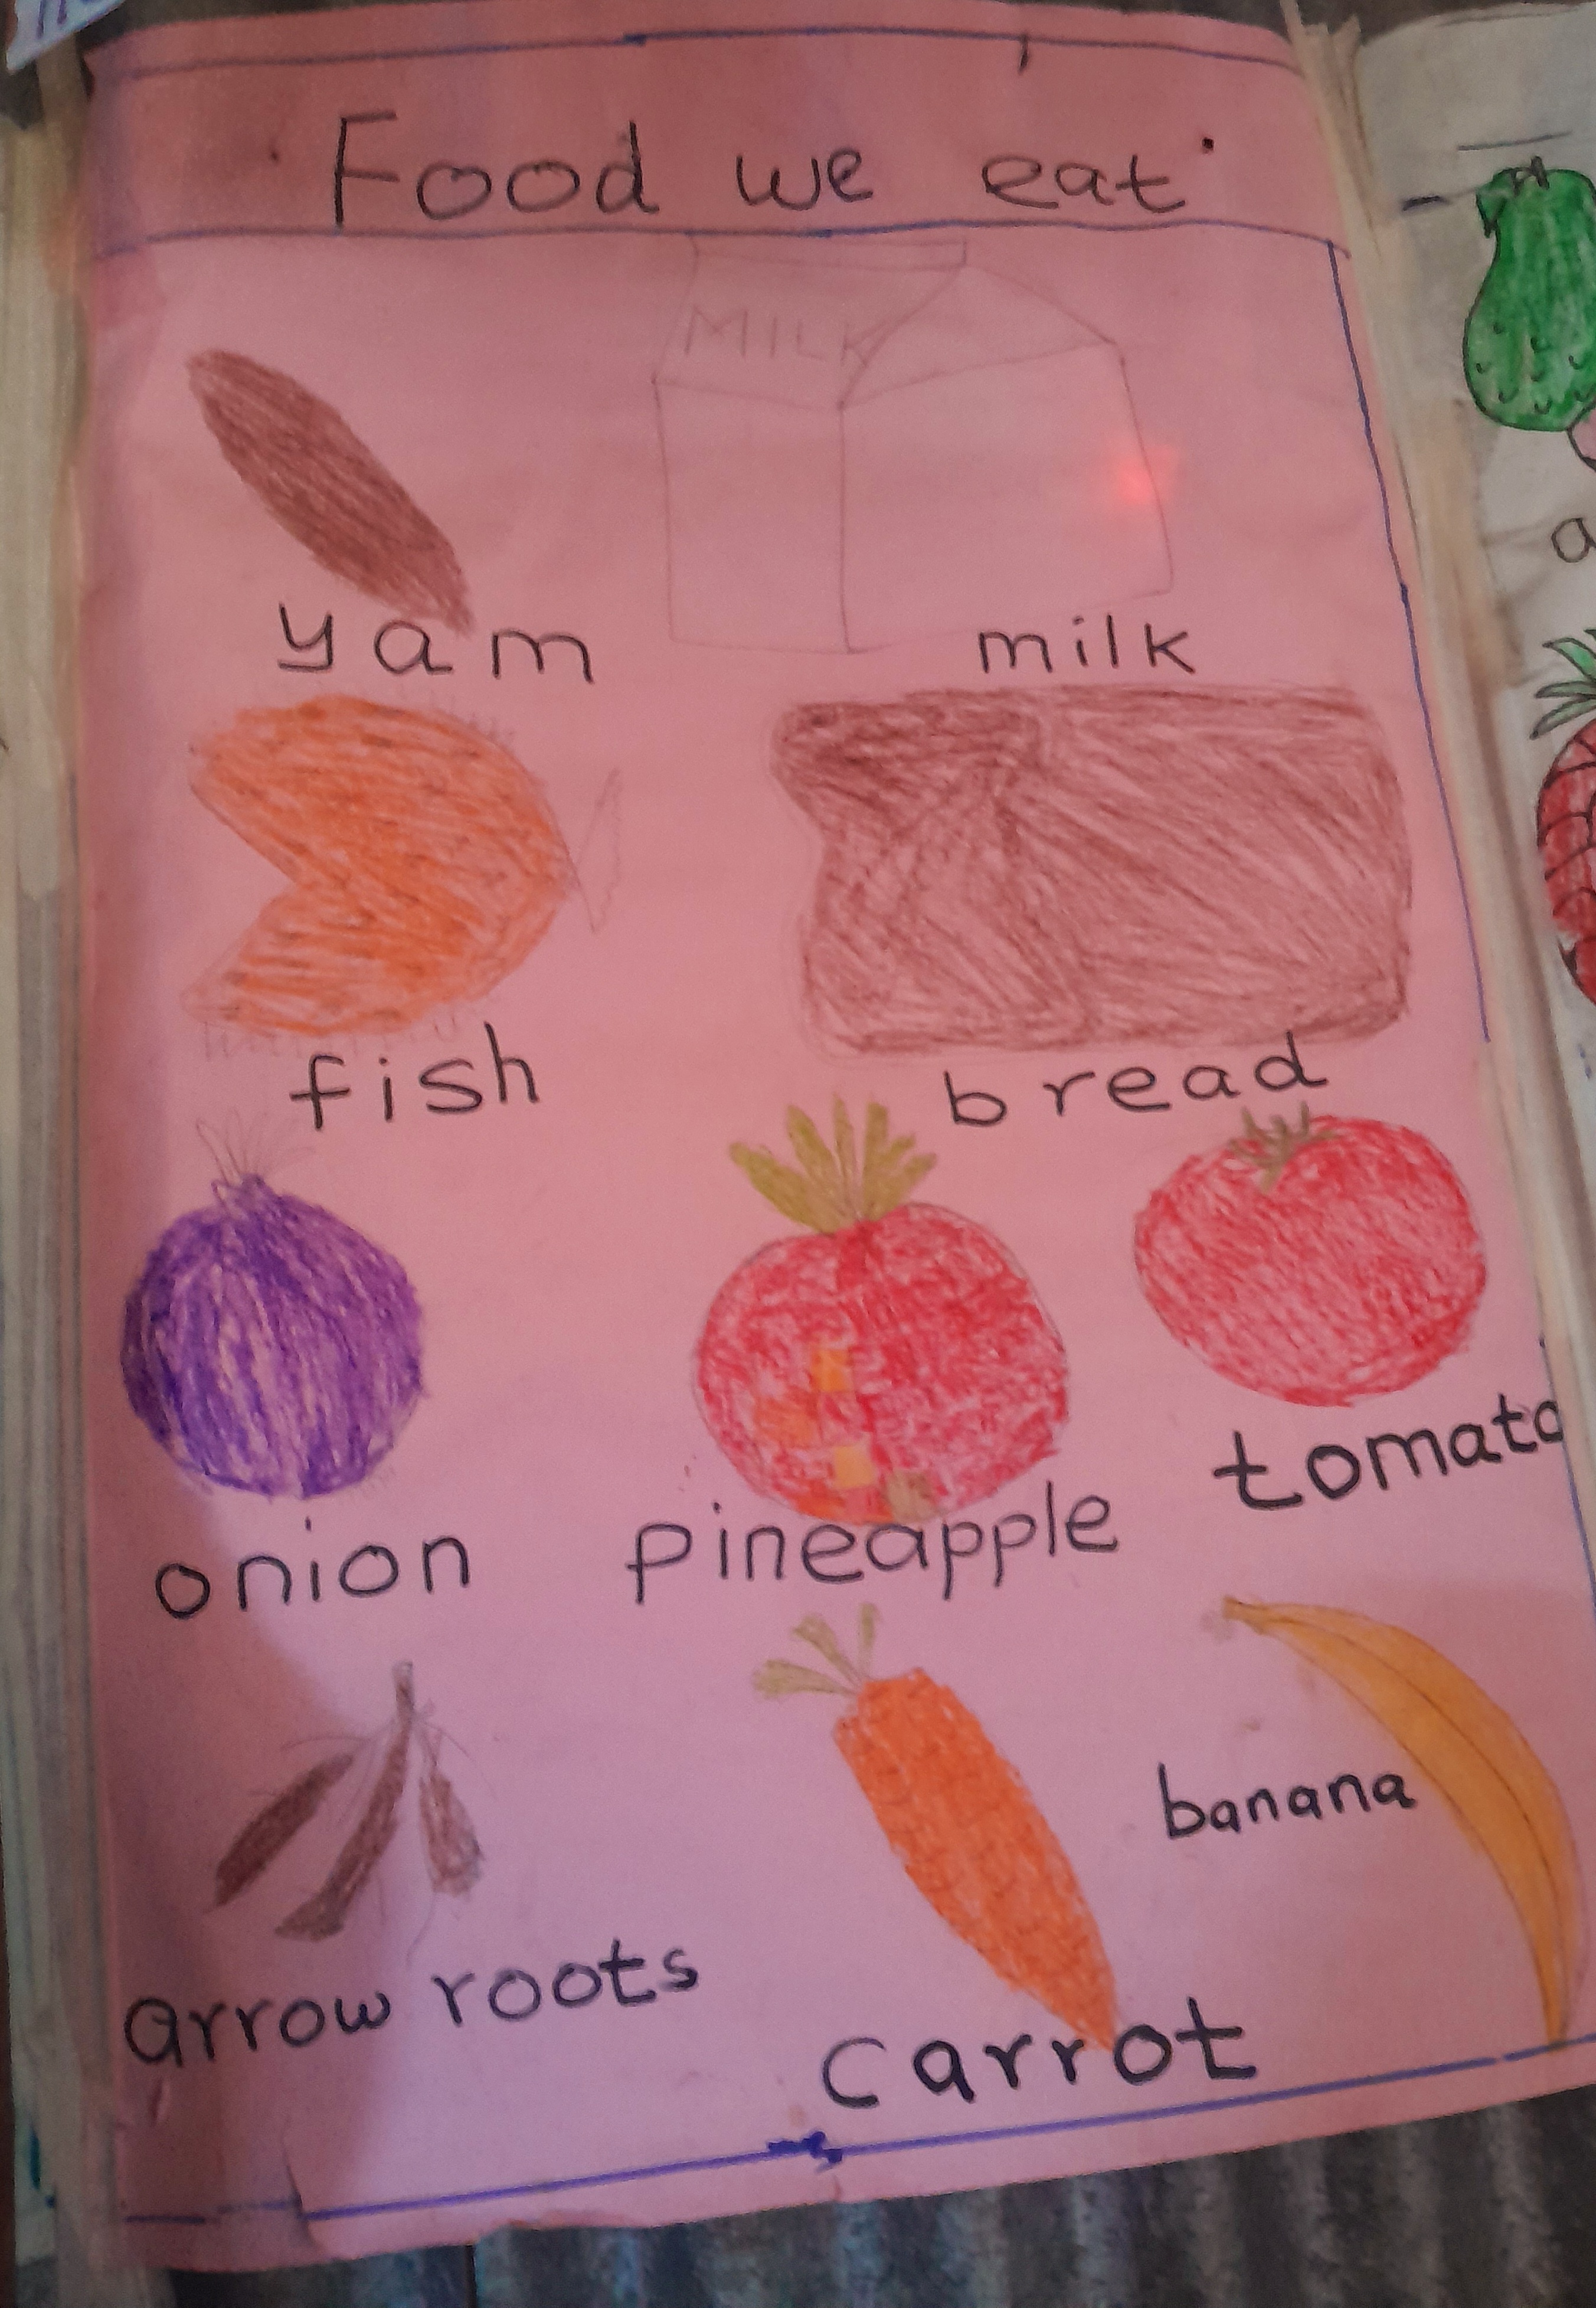 Food we eat
MILK
yam
milk
fish
bread
onion
pineapple
tomato
banana
arrow roots
carrot